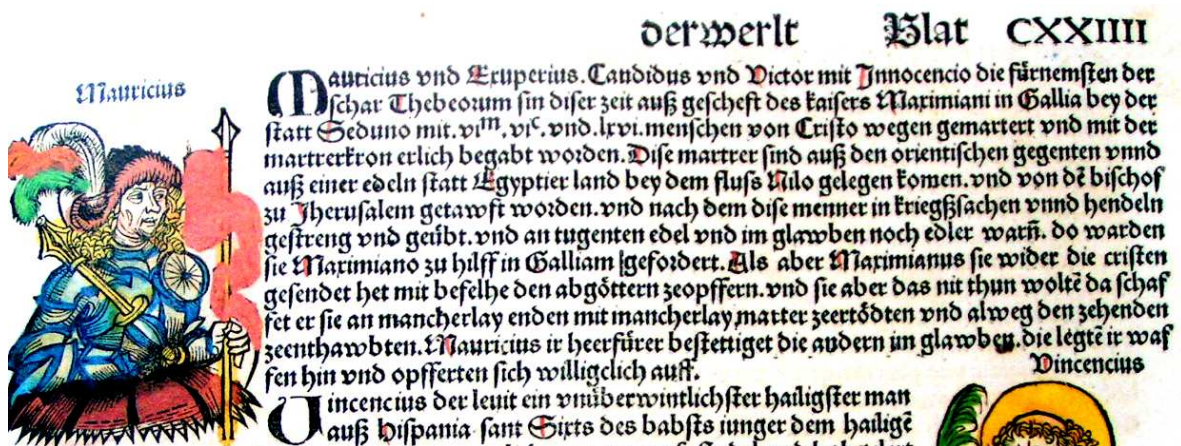 der werlt Blat CXXIIII
Mauricius
Mauricius vnd Exuperius. Candidus vnd Victor mit Innocencio die fürnemsten der
schar Thebeorum sin diser zeit auß gescheft des kaisers Maximiani in Gallia bey der
statt Seduno mit. vi^m. vi^c. vnd. lxvi. menschen von Cristo wegen gemartert vnd mit der
martrerkron erlich begabt worden. Dise martrer sind auß den orientischen gegenten vnnd
auß einer edeln statt Egyptier land bey dem fluss Nilo gelegen komen. vnd von dē bischof
zu Jherusalem getawft worden. vnd nach dem dise menner in kriegßsachen vnnd hendeln
gestreng vnd geübt. vnd an tugenten edel vnd im glawben noch edler warn̄. do warden
sie Maximiano zu hilff in Galliam gefordert. Als aber Maximianus sie wider die cristen
gesendet het mit befelhe den abgöttern zeopffern. vnd sie aber das nit thun woltē da schaf
fet er sie an mancherlay enden mit mancherlay marter zeertödten vnd alweg den zehenden
zeenthawbten. Mauricius ir heerfürer bestettiget die andern im glawben. die legtē ir waf
fen hin vnd opfferten sich williglich auff.
Vincencius
Vincencius der leuit ein vnüberwintlichster hailigster man
auß Hispania sant Sixts des babsts iunger dem hailigē